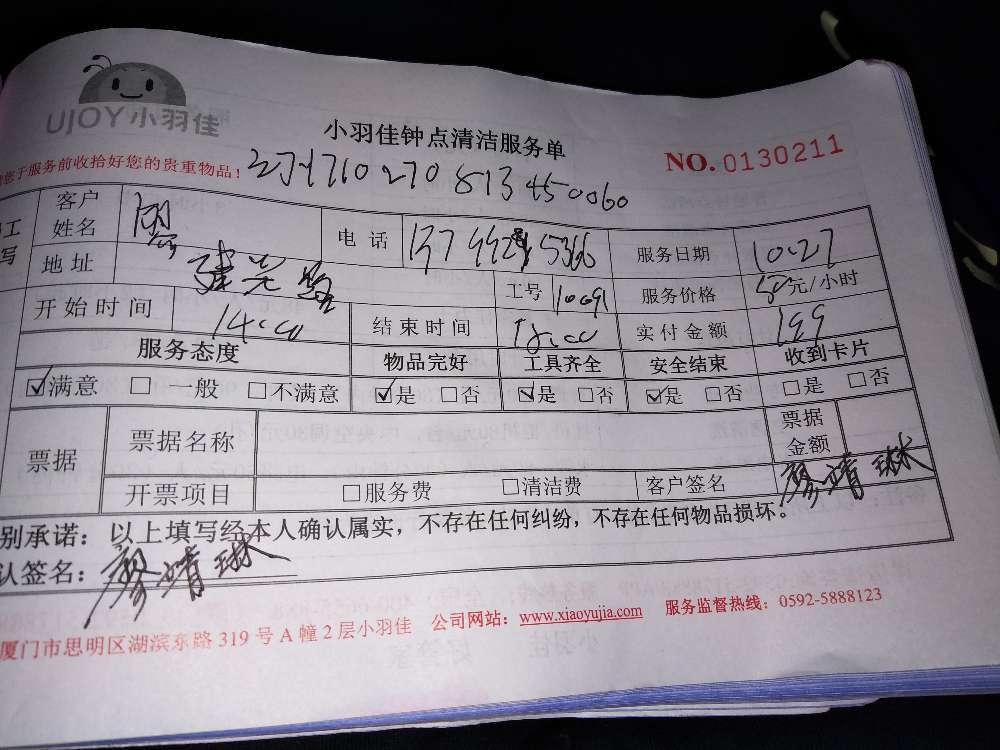 UJOY小羽佳
小羽佳钟点清洁服务单
您于服务前收拾好您的贵重物品！
NO. 0130211
710270813450060
工 客户姓名 电话 服务日期 10.27
写 地址 工号 服务价格 元/小时
开始时间 14:00 结束时间 实付金额 199
服务态度 物品完好 工具齐全 安全结束 收到卡片
☑满意 □一般 □不满意 ☑是 □否 ☑是 □否 ☑是 □否 □是 □否
票据 票据名称 票据金额
开票项目 □服务费 □清洁费 客户签名 廖靖琳
别承诺：以上填写经本人确认属实，不存在任何纠纷，不存在任何物品损坏。
认签名：廖靖琳
厦门市思明区湖滨东路319号A幢2层小羽佳 公司网站：www.xiaoyujia.com 服务监督热线：0592-5888123